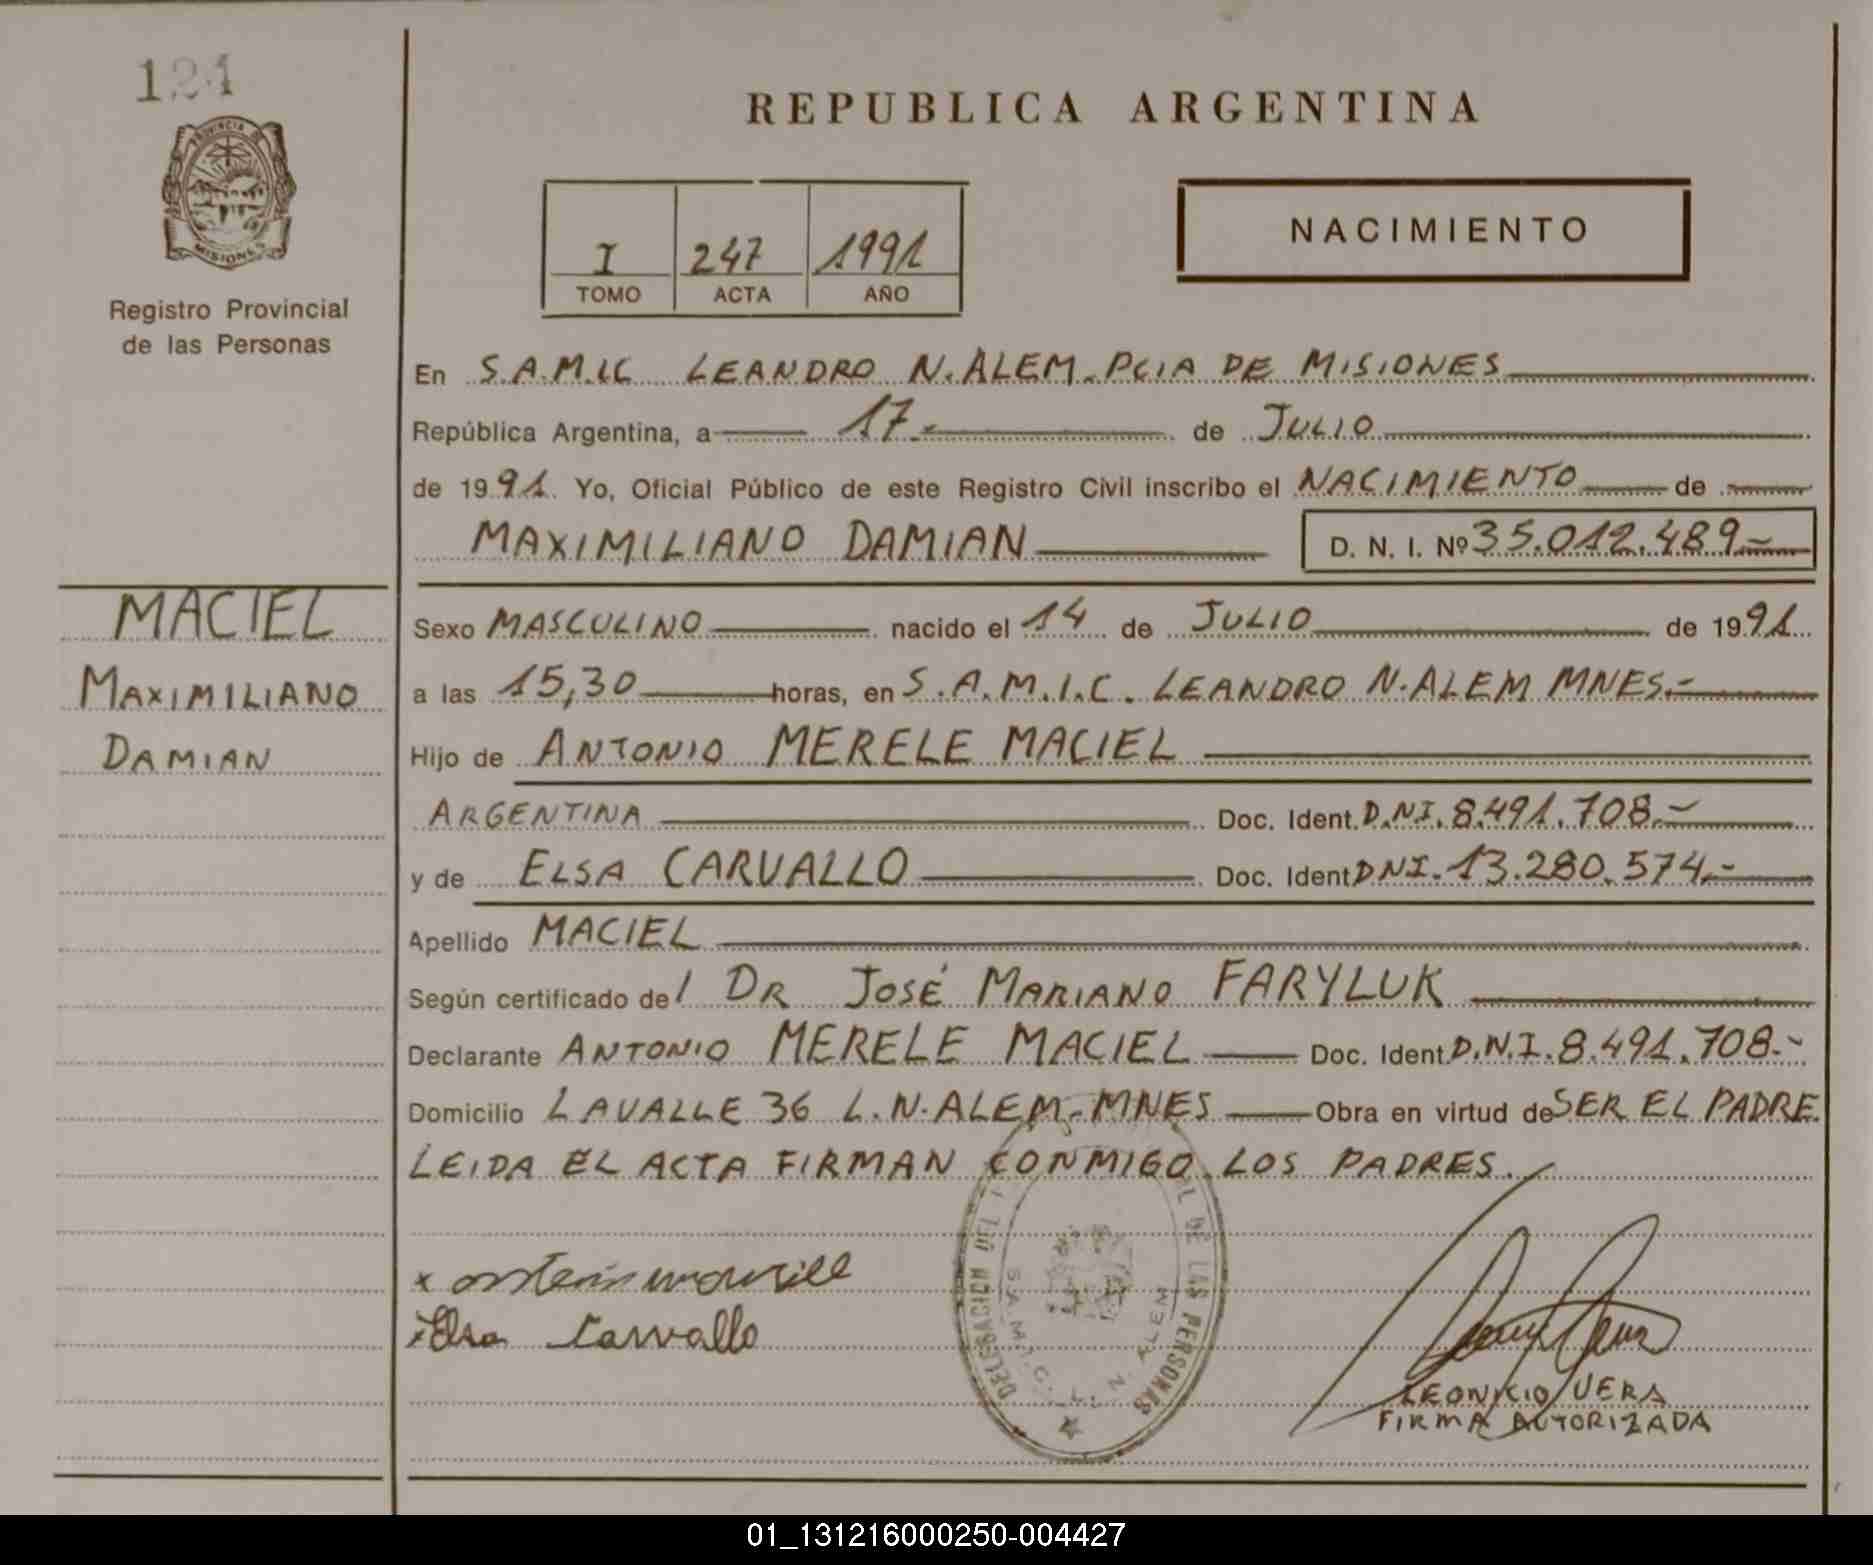 124
PROVINCIA DE
MISIONES
Registro Provincial
de las Personas
REPUBLICA ARGENTINA
I 247 1991
TOMO ACTA AÑO
NACIMIENTO
En S.A.M.I.C LEANDRO N. ALEM - PCIA DE MISIONES
República Argentina, a 17.- de JULIO
de 1991. Yo, Oficial Público de este Registro Civil inscribo el NACIMIENTO de
MAXIMILIANO DAMIAN D. N. I. Nº 35.012.489.-
MACIEL
MAXIMILIANO
DAMIAN
Sexo MASCULINO nacido el 14 de JULIO de 1991
a las 15,30 horas, en S.A.M.I.C. LEANDRO N. ALEM MNES.-
Hijo de ANTONIO MERELE MACIEL
ARGENTINA Doc. Ident. D.N.I. 8.491.708.-
y de ELSA CARVALLO Doc. Ident DNI. 13.280.574.-
Apellido MACIEL
Según certificado del DR JOSÉ MARIANO FARYLUK
Declarante ANTONIO MERELE MACIEL Doc. Ident. D.N.I. 8.491.708.-
Domicilio LAVALLE 36 L.N. ALEM - MNES Obra en virtud de SER EL PADRE.
LEIDA EL ACTA FIRMAN CONMIGO LOS PADRES.
x
x Elsa Carvallo
DELEGACION DEL DE LAS PERSONAS
S.A.M.I.C. L. N. ALEM
LEONICIO VERA
FIRMA AUTORIZADA
01_131216000250-004427